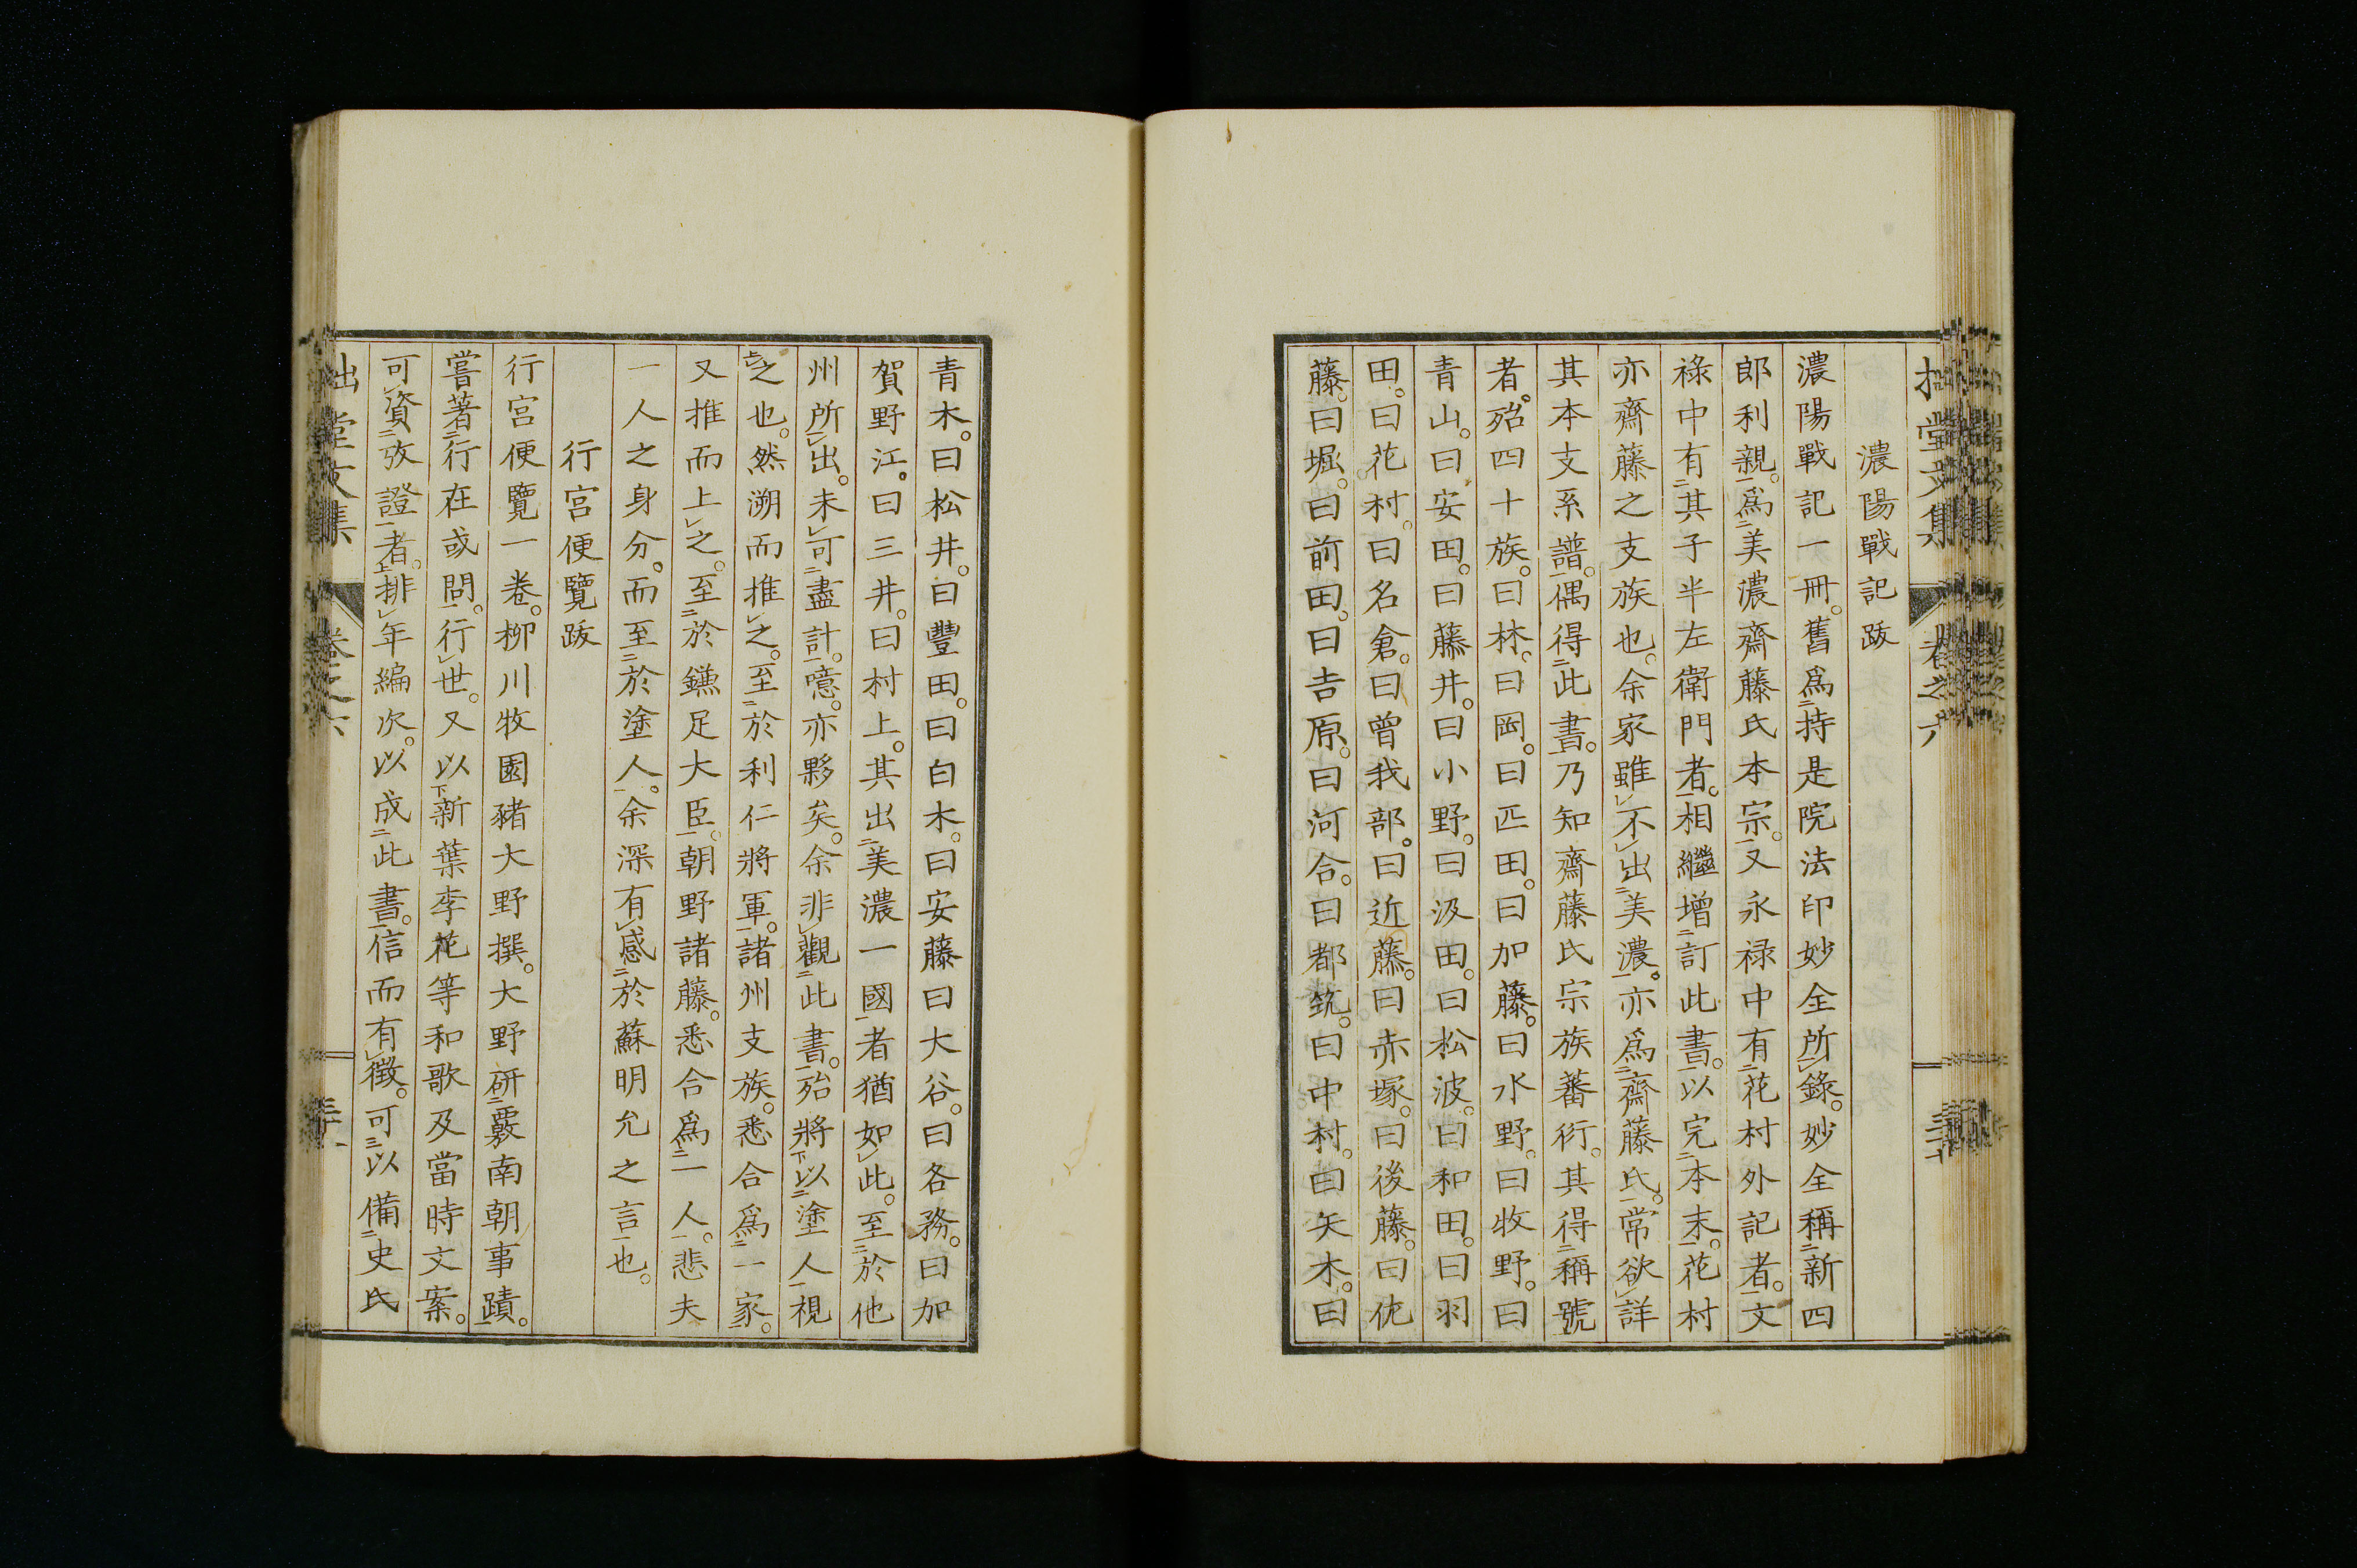 拙堂文集 卷之六
濃陽戰記跋
濃陽戰記一冊。舊爲持是院法印妙全所錄。妙全稱新四
郎利親。爲美濃齋藤氏本宗。又永祿中有花村外記者。文
祿中有其子半左衛門者。相繼增訂此書。以完本末。花村
亦齋藤之支族也。余家雖不出美濃。亦爲齋藤氏。常欲詳
其本支系譜。偶得此書。乃知齋藤氏宗族蕃衍。其得稱號
者。殆四十族。曰林。曰岡。曰匹田。曰加藤。曰水野。曰牧野。曰
青山。曰安田。曰藤井。曰小野。曰汲田。曰松波。曰和田。曰羽
田。曰花村。曰名倉。曰曾我部。曰近藤。曰赤塚。曰後藤。曰佗
藤。曰堀。曰前田。曰吉原。曰河合。曰都筑。曰中村。曰矢木。曰
青木。曰松井。曰豐田。曰白木。曰安藤曰大谷。曰各務。曰加
賀野江。曰三井。曰村上。其出美濃一國者猶如此。至於他
州所出。未可盡計。噫。亦夥矣。余非觀此書。殆將以塗人視
之也。然溯而推之。至於利仁將軍。諸州支族。悉合爲一家。
又推而上之。至於鎌足大臣。朝野諸藤。悉合爲一人。悲夫
一人之身分。而至於塗人。余深有感於蘇明允之言也。
行宮便覽跋
行宮便覽一卷。柳川牧園豬大野撰。大野研覈南朝事蹟。
嘗著行在或問。行世。又以新葉李花等和歌及當時文案。
可資攷證者。排年編次。以成此書。信而有徵。可以備史氏
拙堂文集 卷之六